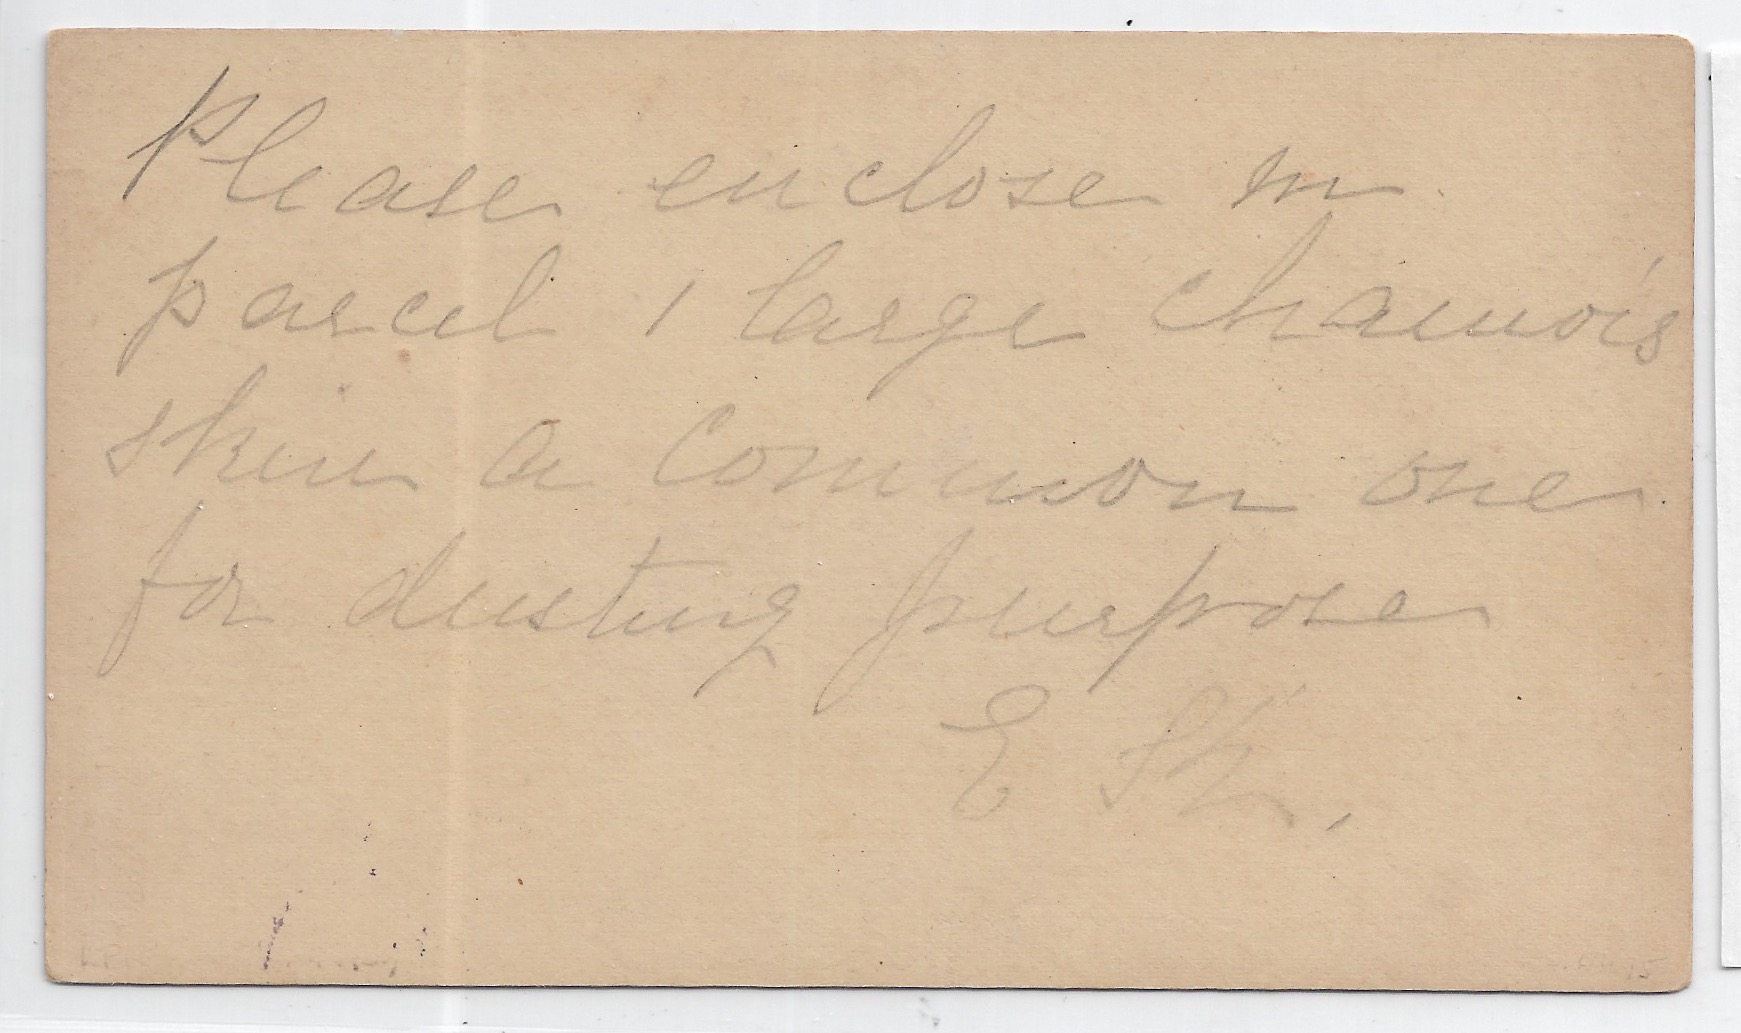 Please enclose in
parcel 1 large chamois
skin a common one
for dusting purpose
E